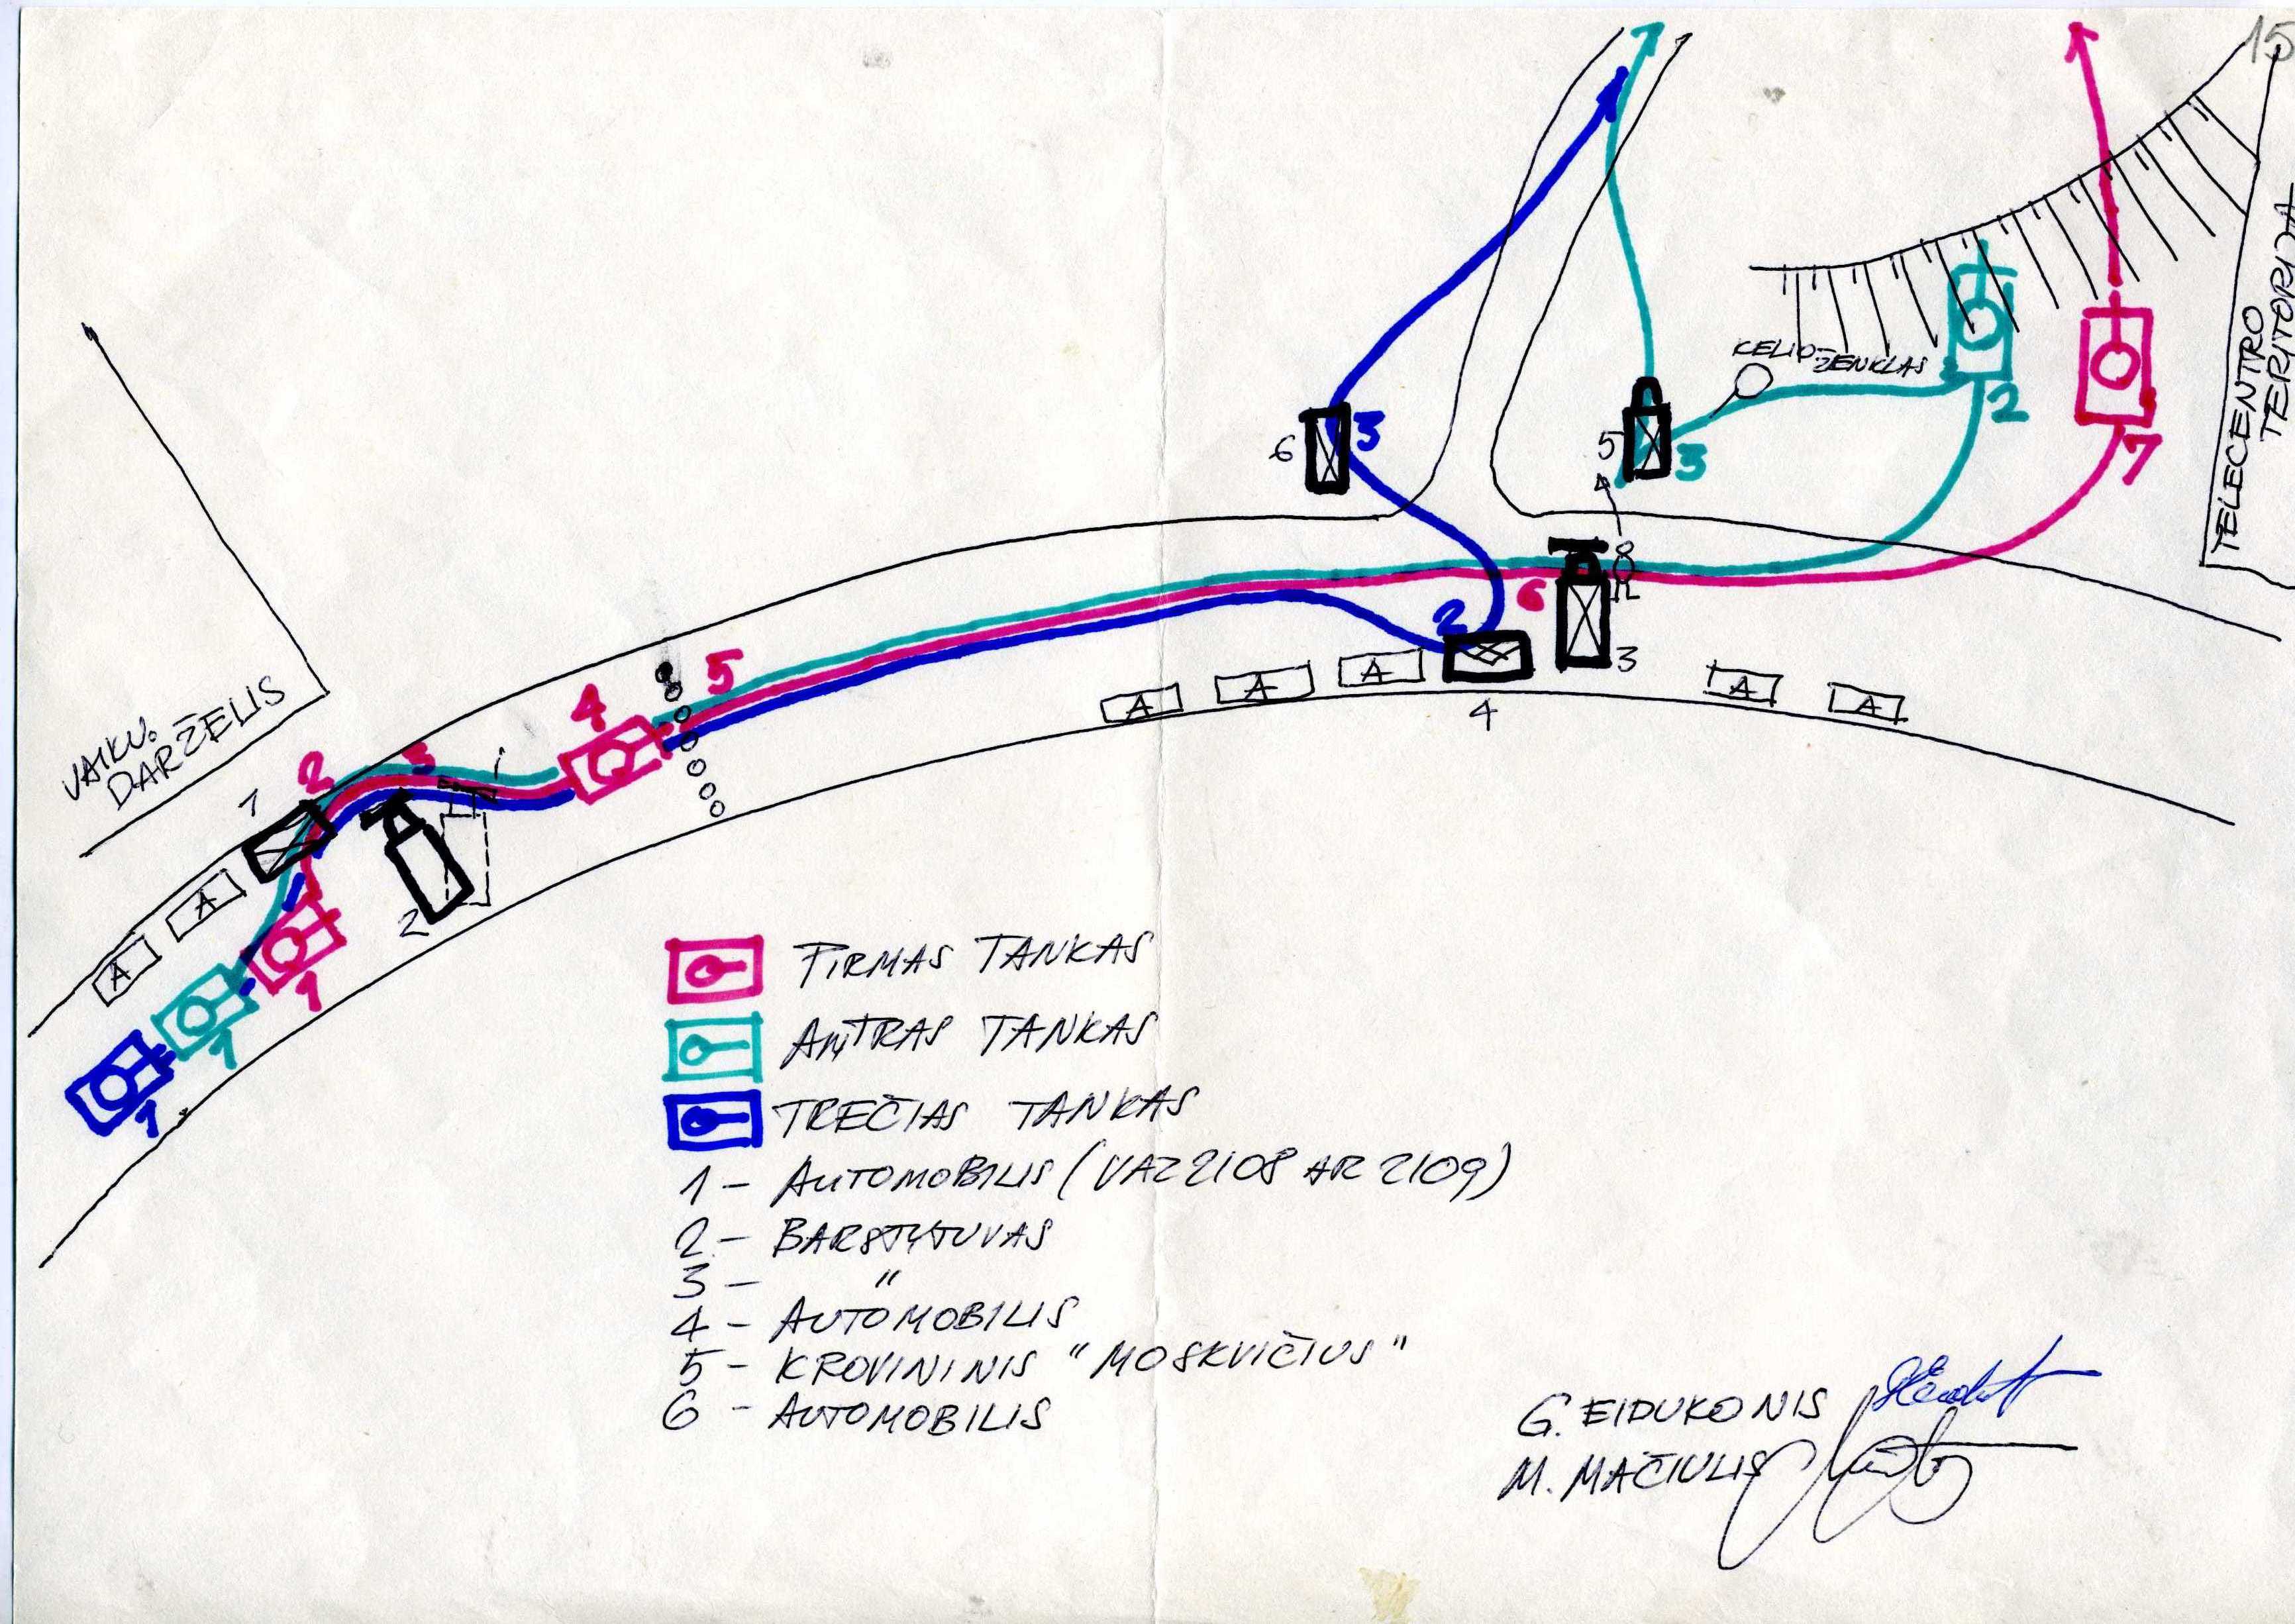 15
TELECENTRO
TERITORIJA
KELIO ŽENKLAS
2
7
3
6
3
5
3
8
6
2
3
4
A
A
A
A
A
4
5
VAIKŲ
DARŽELIS
1
2
3
2
A
A
1
1
1
PIRMAS TANKAS
ANTRAS TANKAS
TREČIAS TANKAS
1 - AUTOMOBILIS (VAZ 2108 AR 2109)
2 - BARSTYTUVAS
3 - "
4 - AUTOMOBILIS
5 - KROVININIS "MOSKVIČIUS"
6 - AUTOMOBILIS
G. EIDUKONIS
M. MAČIULIS